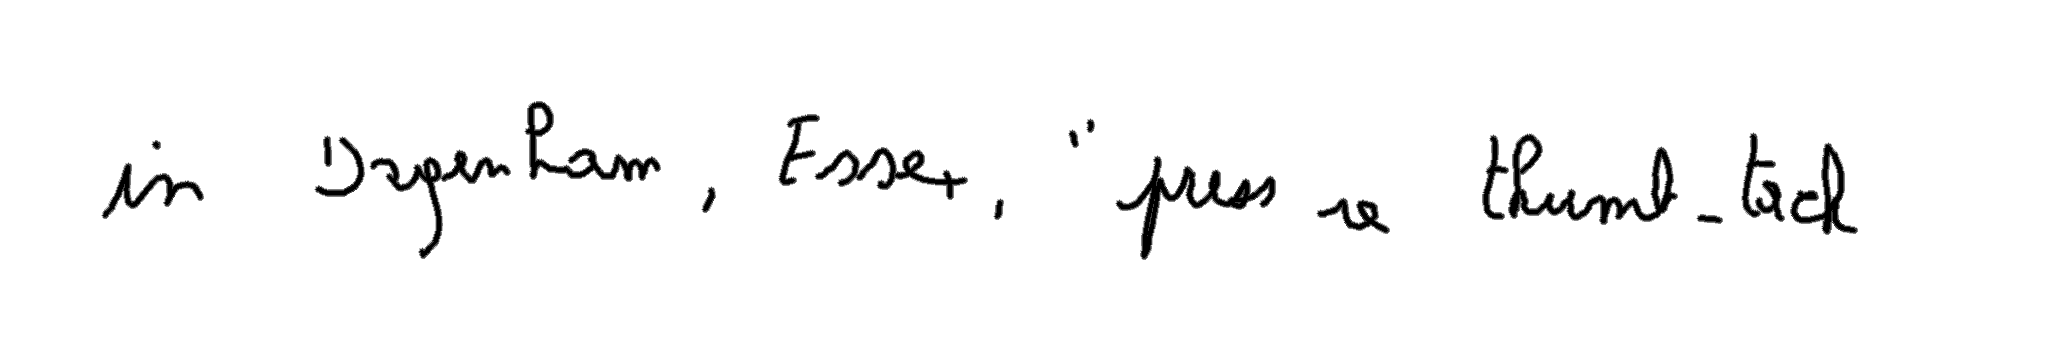 in Dagenham, Essex, "press a thumb-tack